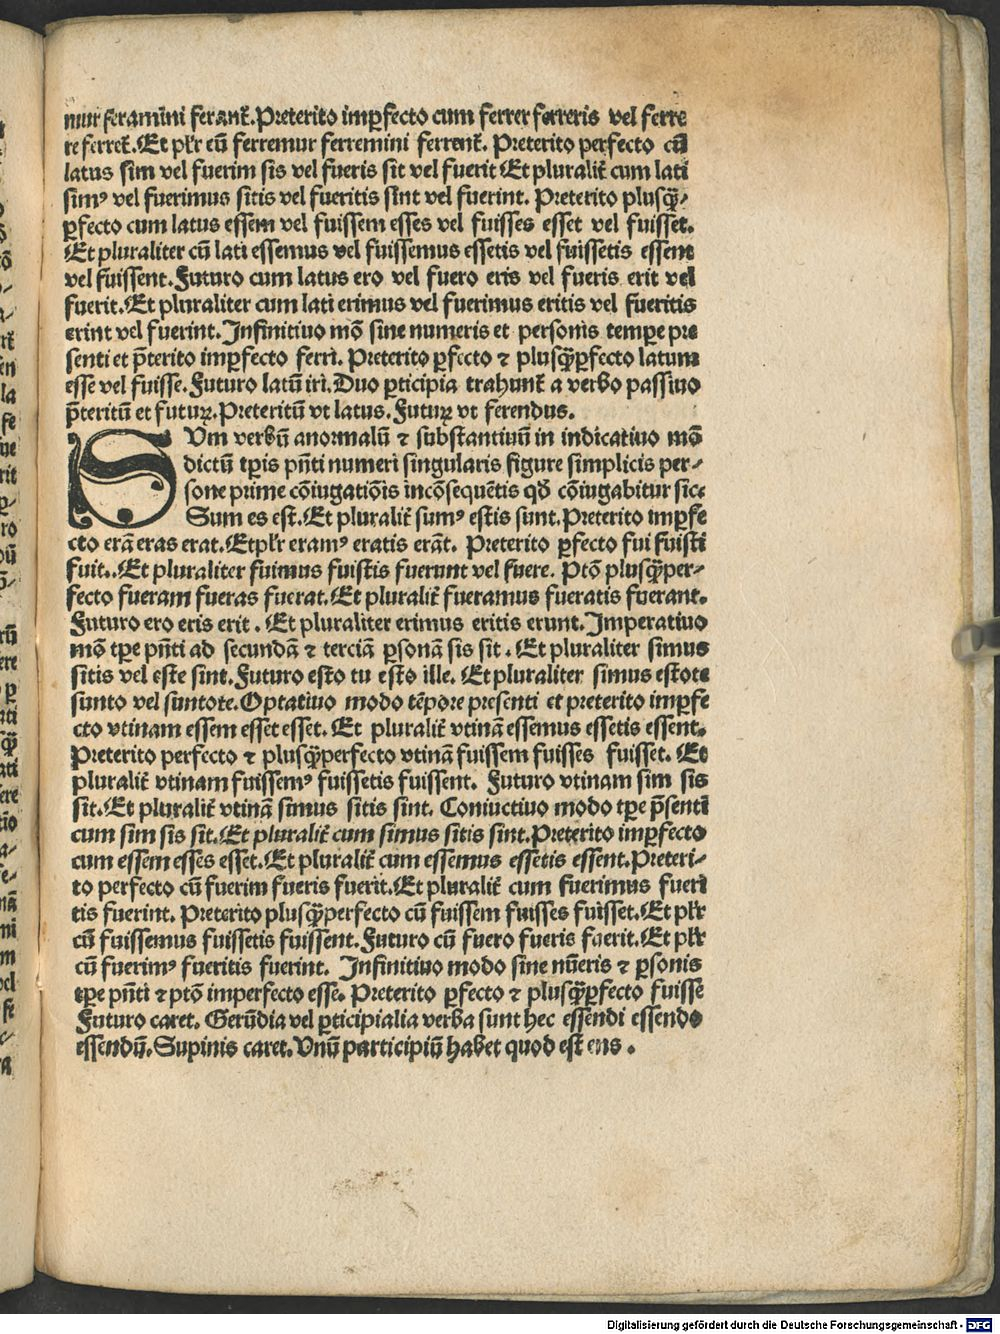 mur feramini ferant᷑. Preterito imꝑfecto cum ferrer ferreris vel ferre
re ferret᷑. Et pl᷑r cū ferremur ferremini ferrent᷑. Preterito perfecto cū
latus sim vel fuerim sis vel fueris sit vel fuerit Et pluralit᷑ cum lati
simꝰ vel fuerimus sitis vel fueritis sint vel fuerint. Preterito plusq̄ꝫ-
ꝑfecto cum latus essem vel fuissem esses vel fuisses esset vel fuisset.
Et pluraliter cū lati essemus vel fuissemus essetis vel fuissetis essent
vel fuissent. Futuro cum latus ero vel fuero eris vel fueris erit vel
fuerit. Et pluraliter cum lati erimus vel fuerimus eritis vel fueritis
erint vel fuerint. Infinitiuo mō sine numeris et personis tempe pre
senti et p̄terito imꝑfecto ferri. Preterito ꝑfecto ⁊ plusq̄ꝑfecto latum
esse vel fuisse. Futuro latū iri. Duo ꝑticipia trahunt᷑ a verbo passiuo
p̄teritū et futuꝝ. Preteritū vt latus. Futuꝝ vt ferendus.
SVm verbū anormalū ⁊ substantiuū in indicatiuo mō
dictū tp̄is pn̄ti numeri singularis figure simplicis per-
sone prime cōiugatiōis incōsequētis qd̄ cōiugabitur sic.
Sum es est. Et pluralit᷑ sumꝰ estis sunt. Preterito imꝑfe
cto erā eras erat. Et pl᷑r eramꝰ eratis erāt. Preterito ꝑfecto fui fuisti
fuit.. Et pluraliter fuimus fuistis fuerunt vel fuere. Ptō plusq̄per-
fecto fueram fueras fuerat. Et pluralit᷑ fueramus fueratis fuerant.
Futuro ero eris erit. Et pluraliter erimus eritis erunt. Imperatiuo
mō tp̄e pn̄ti ad secundā ⁊ terciā ꝑsonā sis sit. Et pluraliter simus
sitis vel este sint. Futuro esto tu esto ille. Et pluraliter simus estote
sunto vel suntote. Optatiuo modo tēpore presenti et preterito imꝑfe
cto vtinam essem esset esset. Et pluralit᷑ vtinā essemus essetis essent.
Preterito perfecto ⁊ plusq̄ꝑfecto vtinā fuissem fuisses fuisset. Et
pluralit᷑ vtinam fuissemꝰ fuissetis fuissent. Futuro vtinam sim sis
sit. Et pluralit᷑ vtinā simus sitis sint. Coniuctiuo modo tp̄e p̄senti
cum sim sis sit. Et pluralit᷑ cum simus sitis sint. Preterito imꝑfecto
cum essem esses esset. Et pluralit᷑ cum essemus essetis essent. Preteri-
to perfecto cū fuerim fueris fuerit. Et pluralit᷑ cum fuerimus fueri
tis fuerint. Preterito plusq̄perfecto cū fuissem fuisses fuisset. Et pl᷑r
cū fuissemus fuissetis fuissent. Futuro cū fuero fueris fuerit. Et pl᷑r
cū fuerimꝰ fueritis fuerint. Infinitiuo modo sine nūeris ⁊ ꝑsonis
tp̄e pn̄ti ⁊ ptō imperfecto esse. Preterito ꝑfecto ⁊ plusq̄ꝑfecto fuisse
Futuro caret. Gerūdia vel ꝑticipialia verba sunt hec essendi essendo
essendū. Supinis caret. Vnū participiū habet quod est ens.
Digitalisierung gefördert durch die Deutsche Forschungsgemeinschaft - DFG